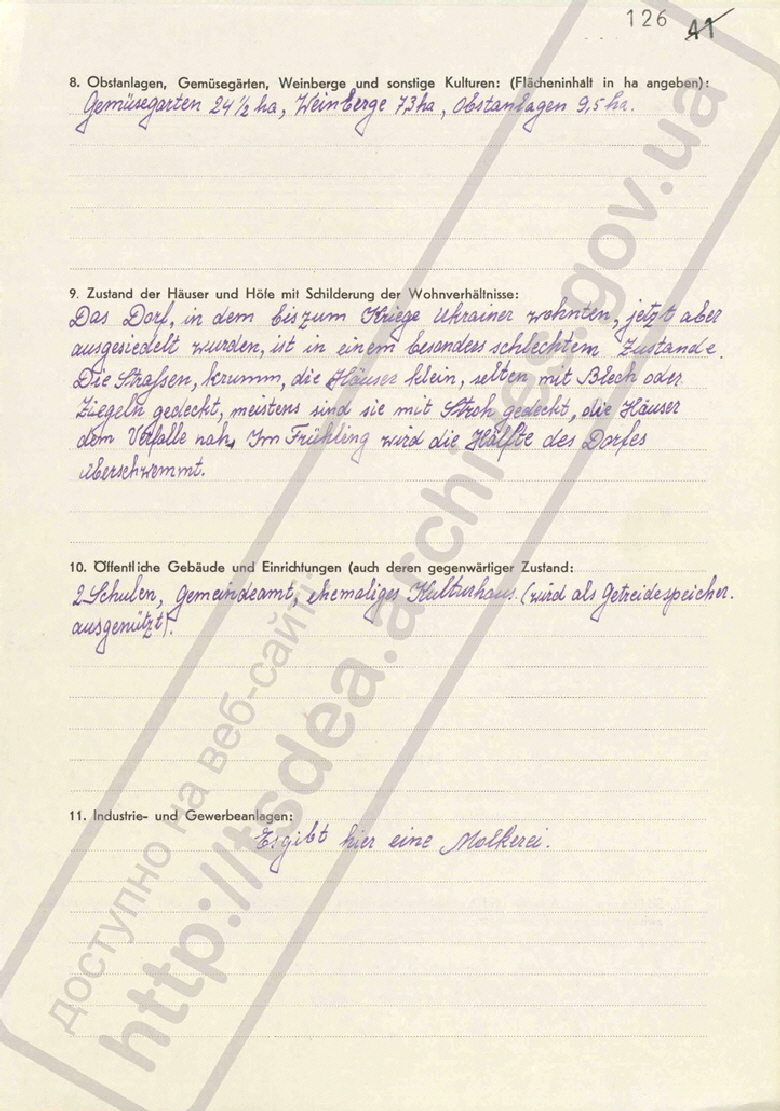 126 41
8. Obstanlagen, Gemüsegärten, Weinberge und sonstige Kulturen: (Flächeninhalt in ha angeben):
Gemüsegarten 24 1/2 ha, Weinberge 73 ha, Obstanlagen 9,5 ha.
9. Zustand der Häuser und Höfe mit Schilderung der Wohnverhältnisse:
Das Dorf, in dem bis zum Kriege Ukrainer wohnten, jetzt aber
ausgesiedelt wurden, ist in einem besonders schlechtem Zustande.
Die Straßen, krumm, die Häuser klein, selten mit Blech oder
Ziegeln gedeckt, meistens sind sie mit Stroh gedeckt, die Häuser
dem Verfalle nah. Im Frühling wird die Hälfte des Dorfes
überschwemmt.
10. Öffentliche Gebäude und Einrichtungen (auch deren gegenwärtiger Zustand:
2 Schulen, Gemeindeamt, ehemaliges Kulturhaus (wird als Getreidespeicher.
ausgenützt).
11. Industrie- und Gewerbeanlagen:
Es gibt hier eine Molkerei.
доступно на веб-сайті:
http://tsdea.archives.gov.ua